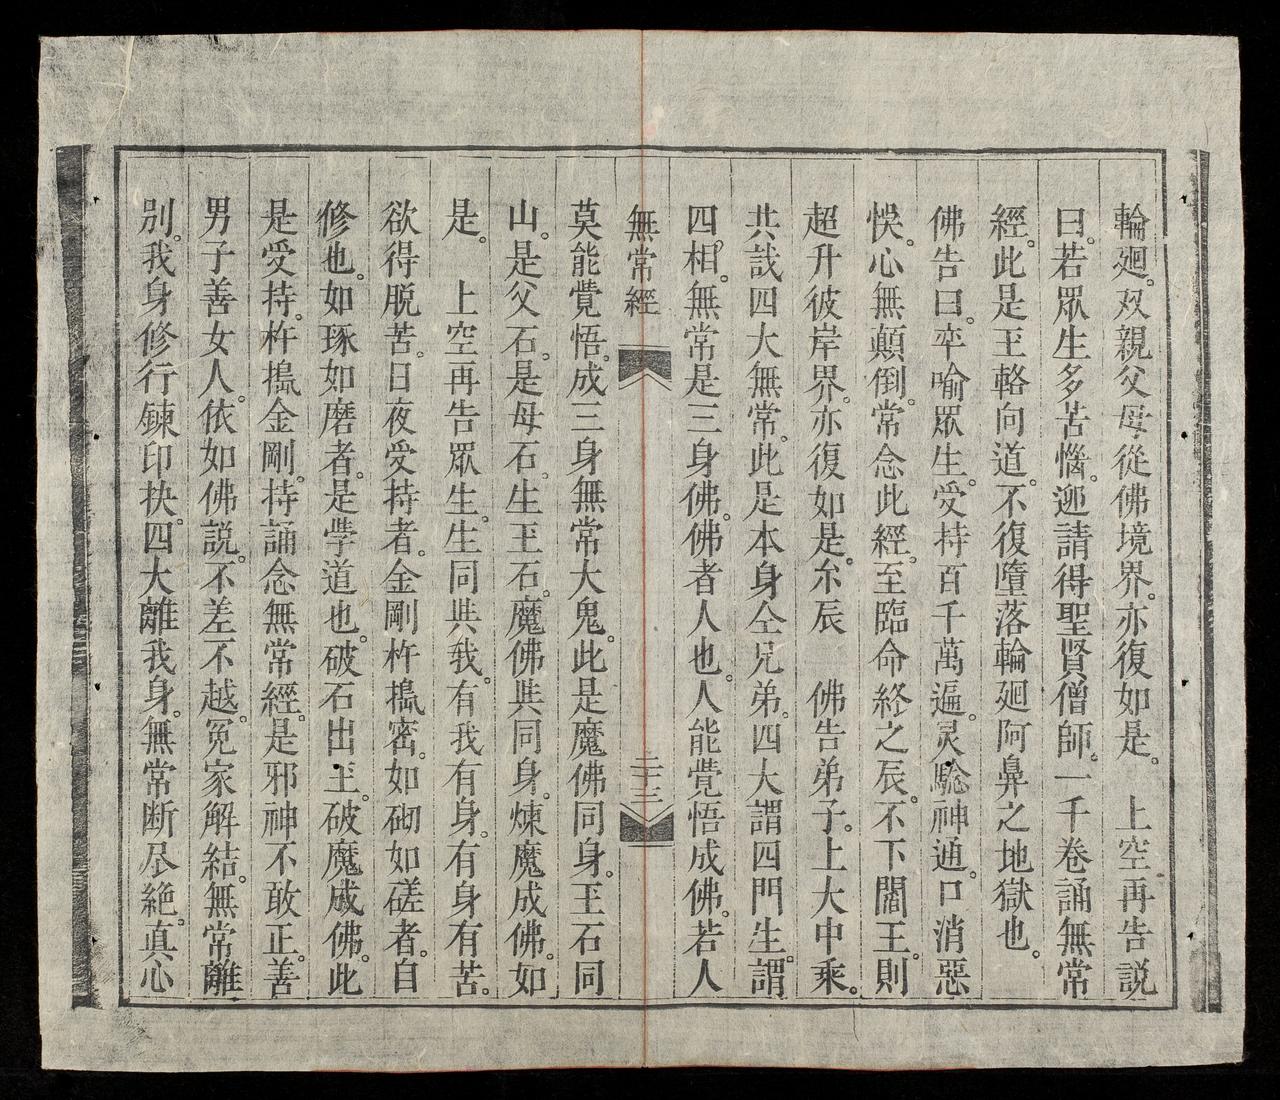 輪廻。双親父母。從佛境界。亦復如是。　上空再告説
曰。若眾生多苦惱。迎請得聖賢僧師。一千卷誦無常
經。此是王輅向道。不復墮落輪廻阿鼻之地獄也。
佛告曰。卒喻眾生。受持百千萬遍。灵騐神通。口消惡
悮。心無顛倒。常念此經。至臨命終之辰。不下閻王。則
超升彼岸界。亦復如是。尒辰　佛告弟子。上大中乘。
共哉四大無常。此是本身仝兄弟。四大謂四門生。謂
四相。無常是三身佛。佛者人也。人能覺悟成佛。若人
無常經　二十三
莫能覺悟。成三身無常大鬼。此是魔佛同身。玉石同
山。是父石。是母石。生玉石。魔佛共同身。煉魔成佛。如
是。　上空再告眾生。生同共我。有我有身。有身有苦。
欲得脱苦。日夜受持者。金剛杵搗密。如砌如磋者。自
修也。如琢如磨者。是斈道也。破石出玉。破魔成佛。此
是受持。杵搗金剛。持誦念無常經。是邪神不敢正。善
男子善女人。依如佛説。不差不越。冤家解結。無常離
別。我身修行錬印抉。四大離我身。無常断尽絶。真心